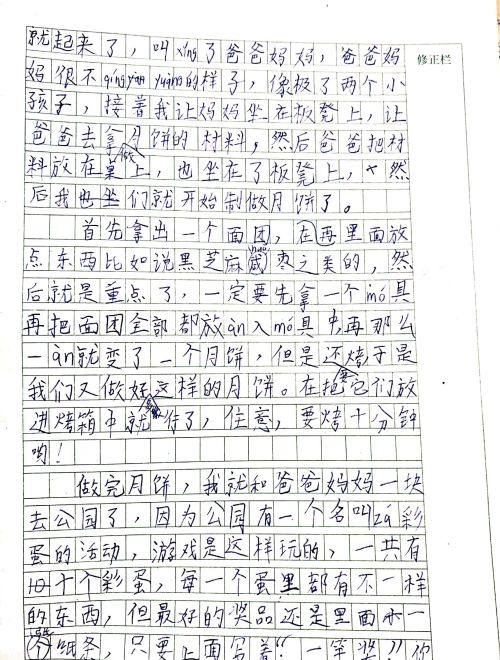 就起来了，叫xǐng了爸爸妈妈，爸爸妈
修正栏
妈很不qíng yuàn yuàn的样子，像极了两个小
孩子，接着我让妈妈坐在板凳上，让
爸爸去拿月饼的材料，然后爸爸把材
料放在桌上，也坐在了板凳上，然
后我也坐们就开始制做月饼了。
首先拿出一个面团，在再里面放
点东西比如说黑芝麻咸枣之类的，然
后就是重点了，一定要先拿一个mó具
再把面团全部都放àn入mó具中，再那么
一àn就变了一个月饼，但是还烤于是
我们又做好这样的月饼。在把它们放
进烤箱中就行了，住意，要烤十分钟
哟！
做完月饼，我就和爸爸妈妈一块
去公园了，因为公园有一个名叫zá彩
蛋的活动，游戏是这样玩的，一共有
10十个彩蛋，每一个蛋里都有不一样
的东西，但最好的奖品还是里面小一
个纸条，只要上面写着“一等奖”你